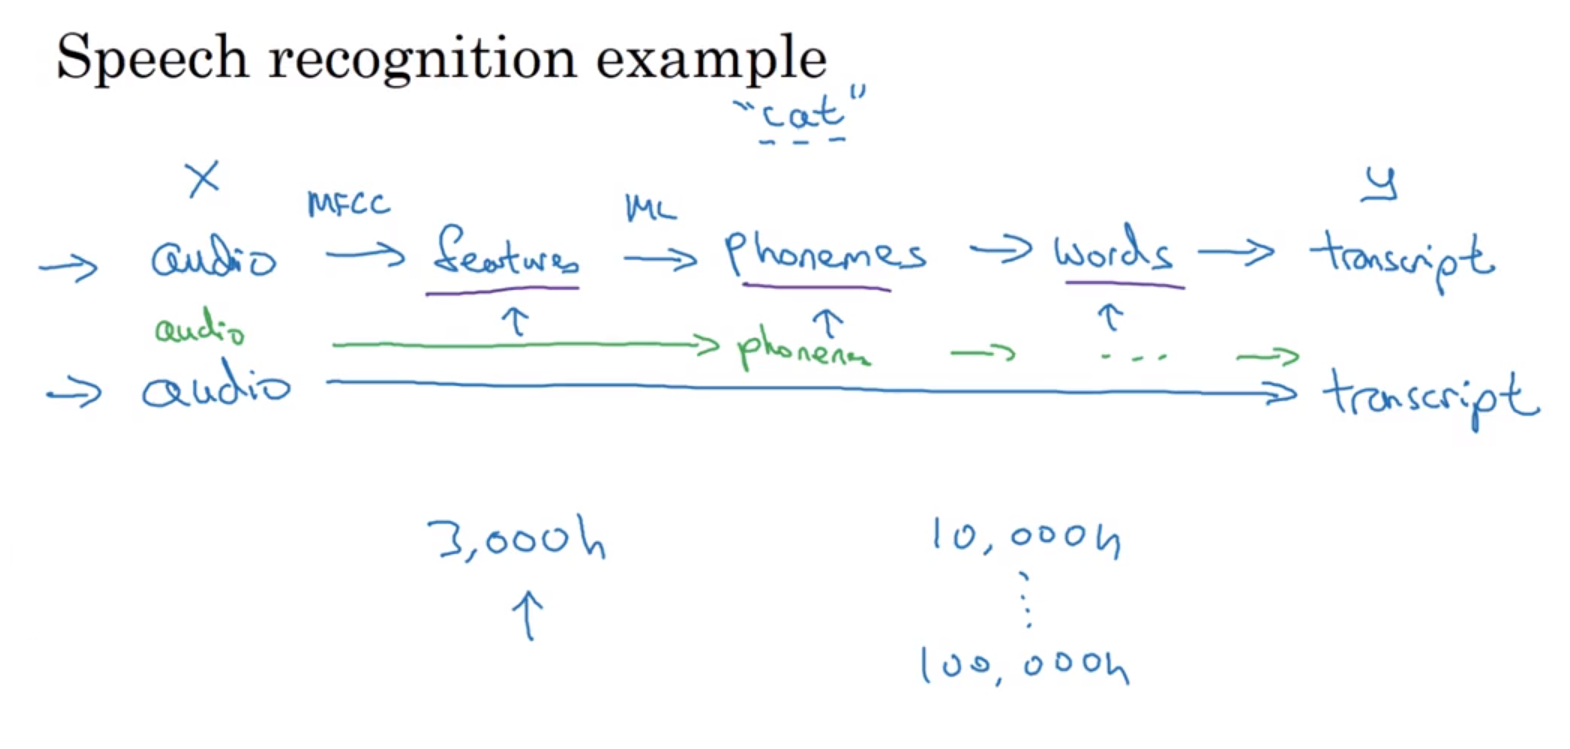 Speech recognition example
"cat"
X y
MFCC ML
→ audio → features → phonemes → words → transcript
↑ ↑ ↑
audio → phonem → ... →
→ audio → transcript
3,000h 10,000h
↑ ⋮
100,000h